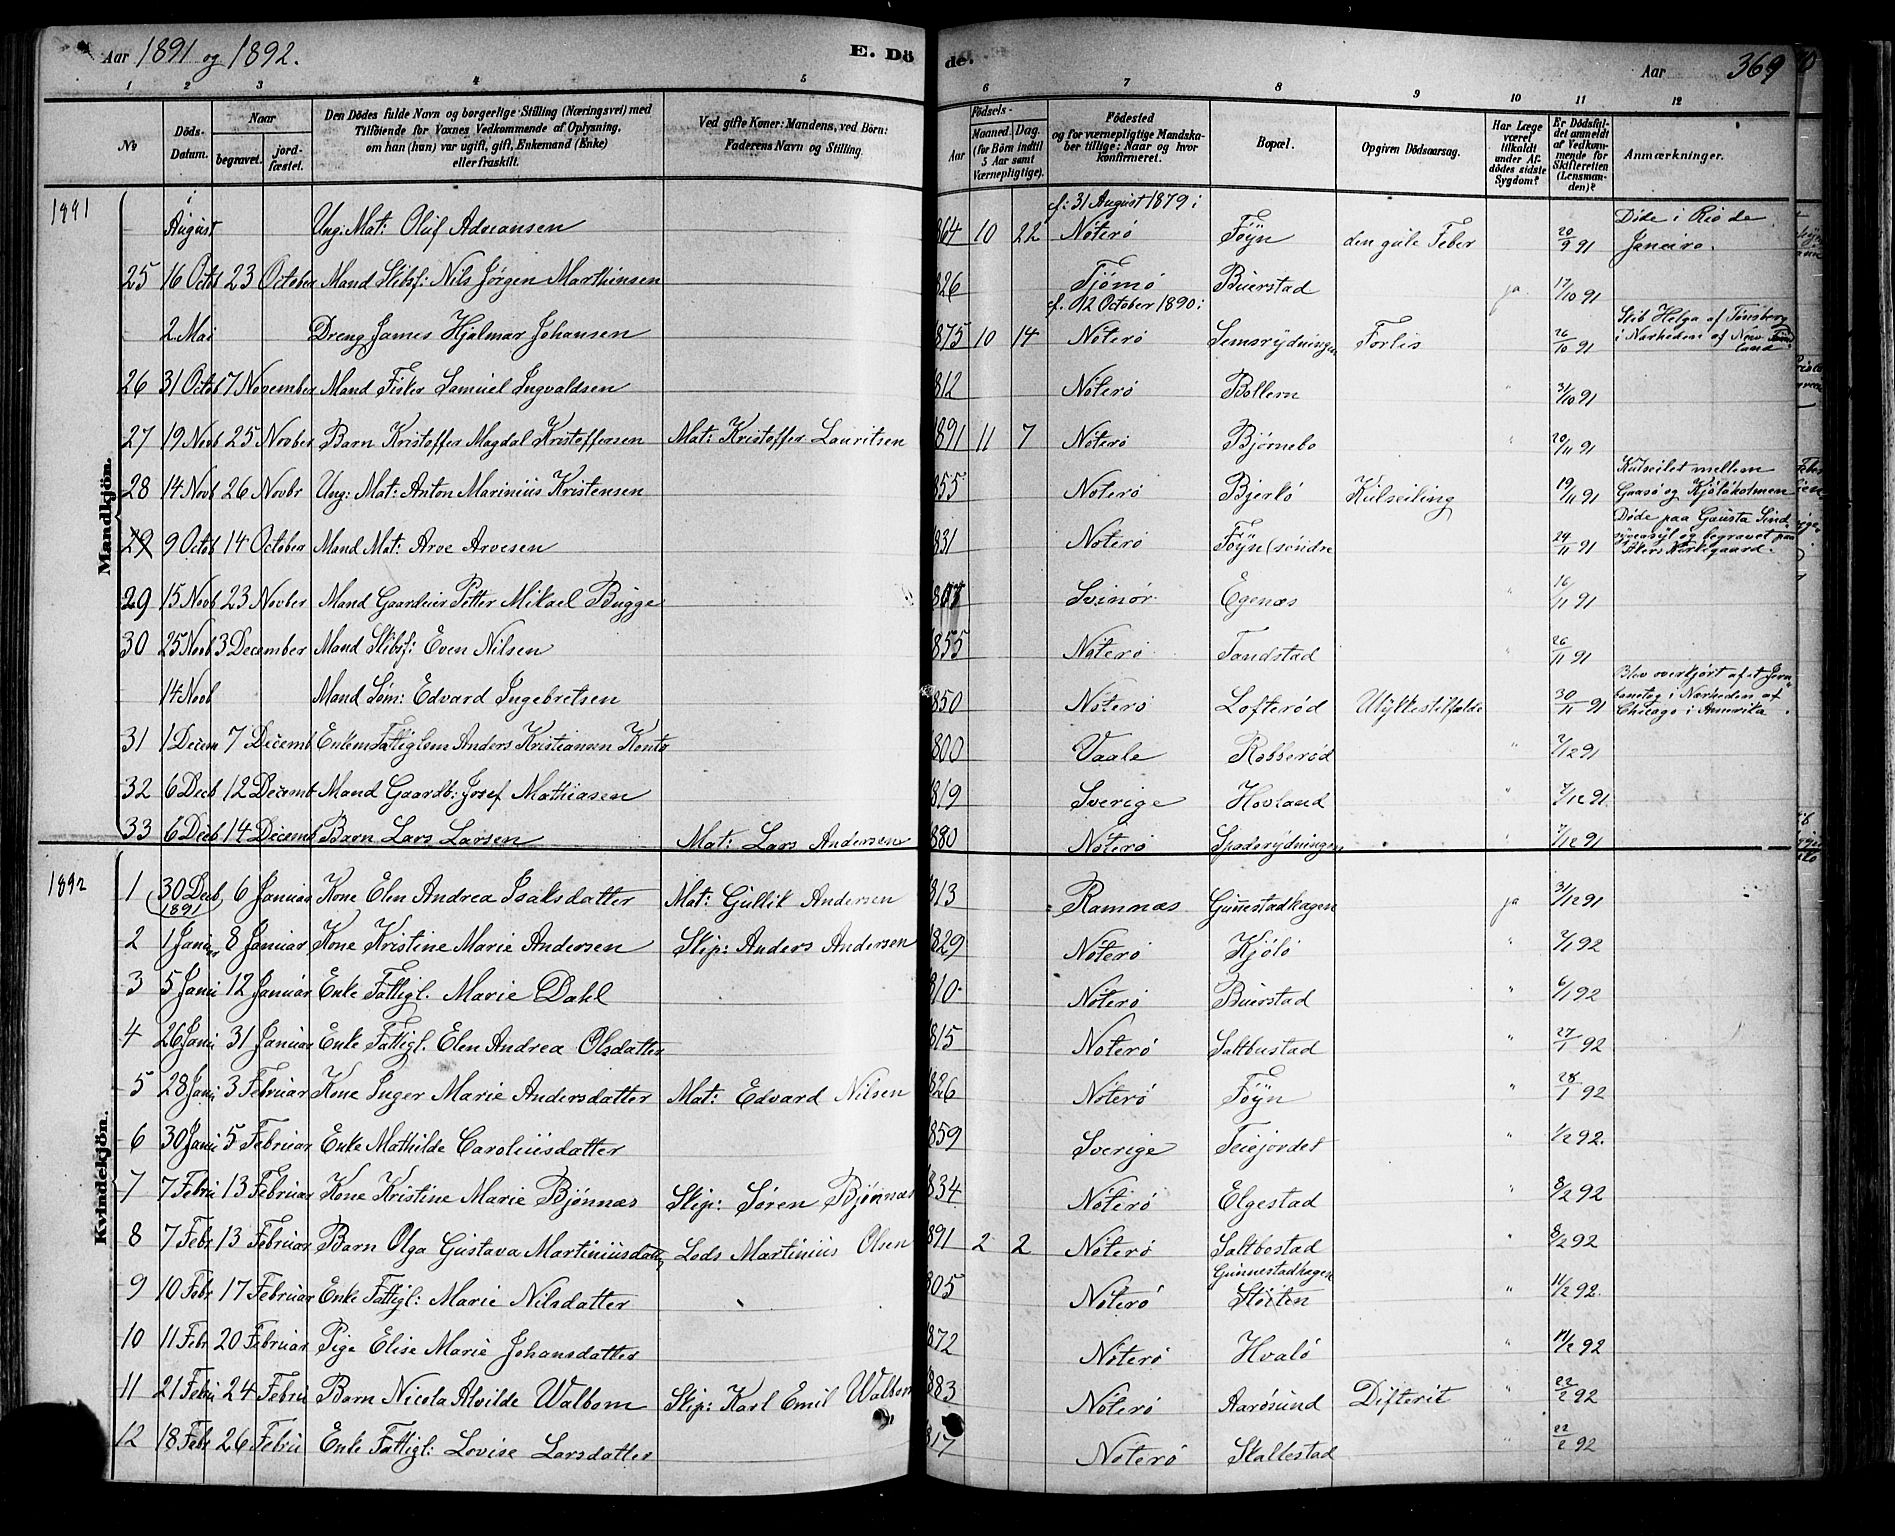 Aar 1891 og 1892. E. Dö de. Aar 369
1 2 3 4 5 6 7 8 9 10 11 12
No
Döds-Datum.
Naar
begravet.
jord-fæstet.
Den Dödes fulde Navn og borgerlige Stilling (Næringsvei) med
Tilföiende for Voxnes Vedkommende af Oplysning,
om han (hun) var ugift, gift, Enkemand (Enke)
eller fraskilt.
Ved gifte Koner: Mandens, ved Börn:
Faderens Navn og Stilling.
Födsels-
Aar
Maaned. Dag.
(for Börn indtil
5 Aar samt
Værnepligtige).
Födested
og for værnepligtige Mandska-
ber tillige: Naar og hvor
konfirmeret.
Bopæl.
Opgiven Dödsaarsag.
Har Læge
været
tilkaldt
under Af-
dödes sidste
Sygdom?
Er Dödsfal-
det anmeldt
af Vedkom-
mende for
Skifteretten
(Lensman-
den)?
Anmærkninger.
Mandkjön.
1891 August Ung: Mat: Oluf Adriansen 864 10 22 cf: 31 August 1879: Nöterö Föyn den gule Feber 20/9 91 Döde i Rio de Janeiro.
25 16 Octob 23 October Mand Skibsf: Nils Jörgen Marthinsen 826 Tjömö Buerstad ja 17/10 91
2 Mai Dreng James Hjalmar Johansen 1875 10 14 cf. 12 October 1890: Nöterö Semsrydningen Forlis 26/10 91 Skib Helga af Tönsberg i Nærheden af New Foundland
26 31 Octob 7 November Mand Fisker Samuel Ingvaldsen 1812 Nöterö Bollern " 31/10 91
27 19 Novb 25 Novber Barn Kristoffer Magdal Kristoffersen Mat: Kristoffer Lauritsen 1891 11 7 Nöterö Björnebo " 20/11 91
28 14 Novb 26 Novbr Ung: Mat: Anton Marinius Kristensen 855 Nöterö Bjerkö Kulseiling 19/11 91 Kulseilet mellem Gaasö og Kjölöholmen
29 9 Octob 14 October Mand Mat: Arve Arvesen 831 Nöterö Föyn (söndre 24/11 91 Döde paa Gausta Sindsygeasyl og begravet paa Akers Kirkegaard.
29 15 Novb 23 Novber Mand Gaardeier Petter Mikael Bugge Svinör Egenæs " 16/11 91
30 25 Novb 3 December Mand Skibsf: Even Nilsen 855 Nöterö Tandstad " 26/11 91
14 Novb Mand Söm: Edvard Ingebretsen 850 Nöterö Lofteröd Ulykkestilfælde 30/11 91 Blev overkjört af et Jernbanetog i Nærheden af Chicago i Amerika.
31 1 Decem 7 Decemb Enkem Fattiglem Anders Kristiansen Konto 800 Vaale Robberöd " 2/12 91
32 6 Decb 12 Decemb Mand Gaardb: Josef Mathiasen 819 Sverige Hovland " 7/12 91
33 6 Decb 14 Decemb Barn Lars Larsen Mat: Lars Andersen 880 Nöterö Spaderydningen " 7/12 91
Kvindekjön.
1892 1 30 Decb 1891 6 Januar Kone Elen Andrea Isaksdatter Mat: Gullik Andersen 813 Ramnæs Gunnestadhagen ja 31/12 91
2 1 Janu 8 Januar Kone Kristine Marie Andersen Skip: Anders Andersen 1829 Nöterö Kjölö " 2/1 92
3 5 Janu 12 Januar Enke Fattigl. Marie Dahl 810 Nöterö Buerstad " 6/1 92
4 26 Janu 31 Januar Enke Fattigl. Elen Andrea Olsdatter 1815 Nöterö Saltbustad " 27/1 92
5 28 Janu 3 Februar Kone Inger Marie Andersdatter Mat: Edvard Nilsen 1826 Nöterö Föyn " 28/1 92
6 30 Janu 5 Februar Enke Mathilde Caroliusdatter 859 Sverige Teiejordet " 1/2 92.
7 7 Febru 13 Februar Kone Kristine Marie Bjönnæs Skip: Sören Bjönnæs 834 Nöterö Elgestad " 8/2 92
8 7 Febr 13 Februar Barn Olga Gustava Martiniusdatter Lods Martinius Olsen 891 2 2 Nöterö Saltbostad " 8/2 92
9 10 Febr 17 Februar Enke Fattigl: Marie Nilsdatter 805 Nöterö Gunnestadhagen Stöiten " 11/2 92.
10 11 Febr 20 Februar Pige Elise Marie Johansdatter 1872 Nöterö Hvalö " 12/2 92
11 21 Febru 24 Febru Barn Nicola Alvilde Walbom Skip: Karl Emil Walbom 883 Nöterö Aarösund Difterit " 22/2 92
12 18 Febr 26 Febru Enke Fattigl: Lovise Larsdatter 817 Nöterö Skallestad " 22/2 92